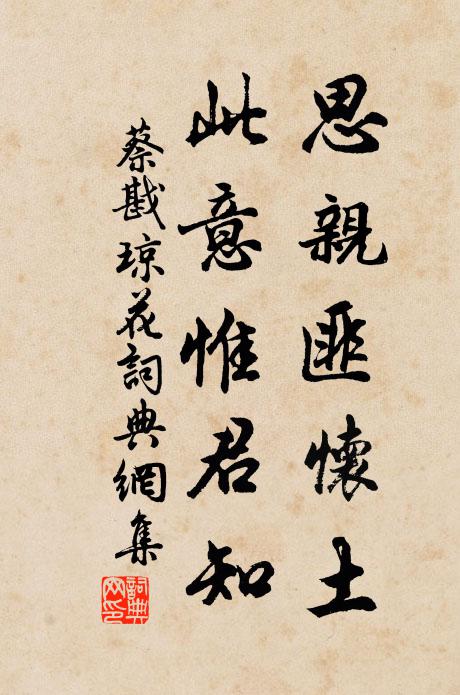 思親匪懷土
此意惟君知
蔡戡琼花詞典網集
詞典
网印